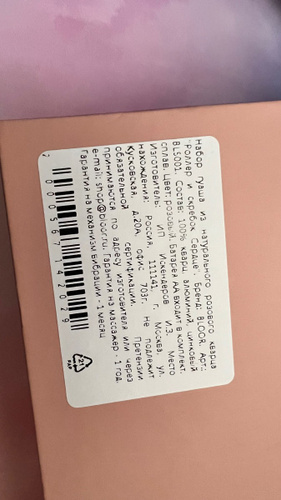 Набор Гуаша из натурального розового кварца
"Роллер и скребок Сердце". Бренд: BLOOR. Арт.:
BLS001. Состав: 100% кварц, алюминий, цинковый
сплав. Цвет: розовый. Батарея АА входит в комплект.
Изготовитель: ИП Искендеров И.З. Место
нахождения: Россия, 111141, г. Москва, ул.
Кусковская, д.20А, офис 703г. Не подлежит
обязательной сертификации. Претензии
принимаются по адресу изготовителя или через
e-mail: shop@bloor.ru. Гарантия на массажер - 1 год.
Гарантия на механизм вибрации - 1 месяц
2 000567 142029
21
PAP